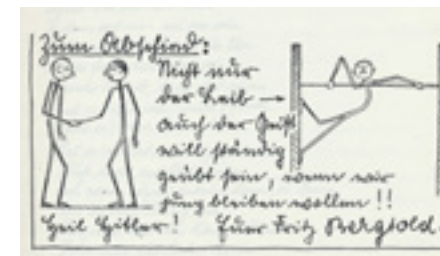 Zum Abschied:
Nicht nur
der Leib
auch der Geist
will ständig
geübt sein, wenn wir
jung bleiben wollen!!
Heil Hitler! Euer Fritz Bergsold.